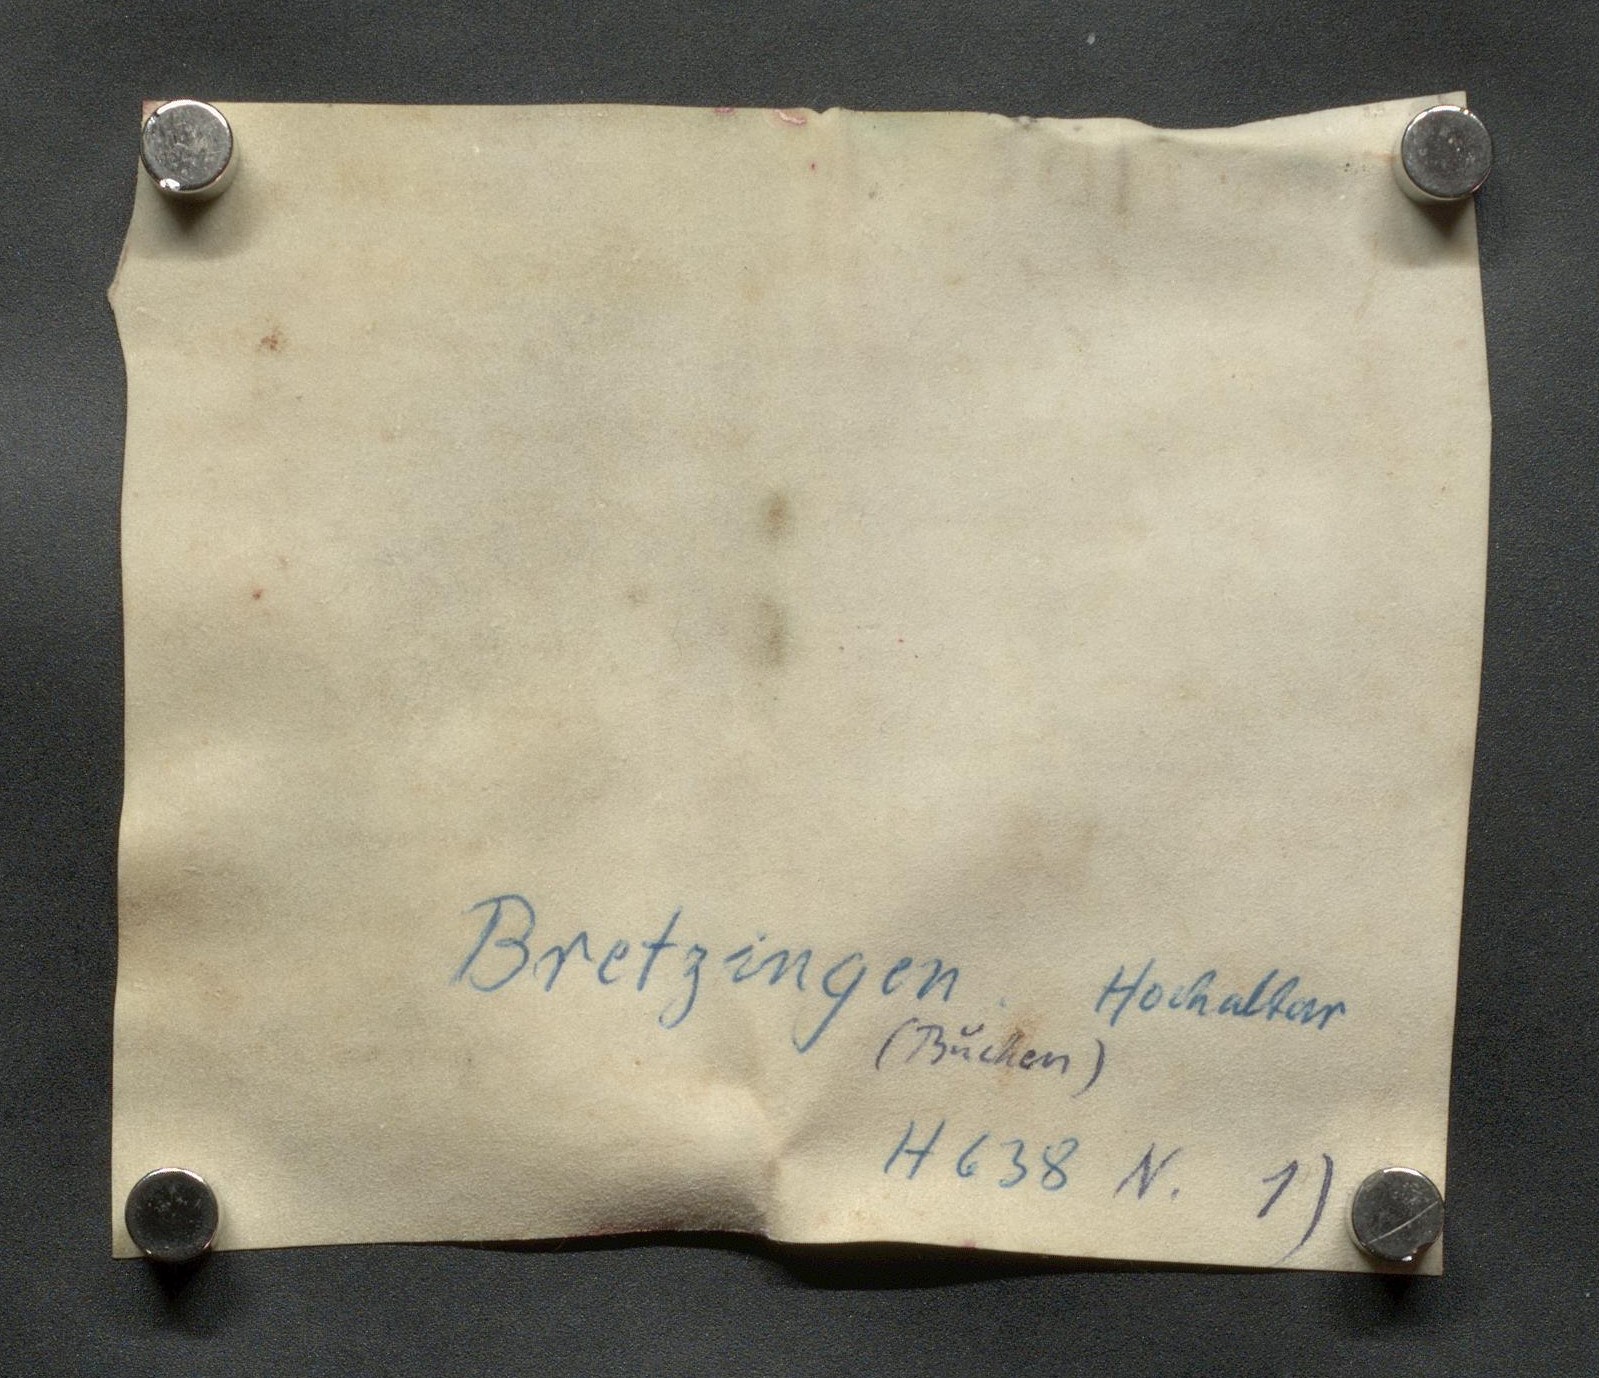 Bretzingen. Hochaltar
(Buchen)
H 638 N. 1)